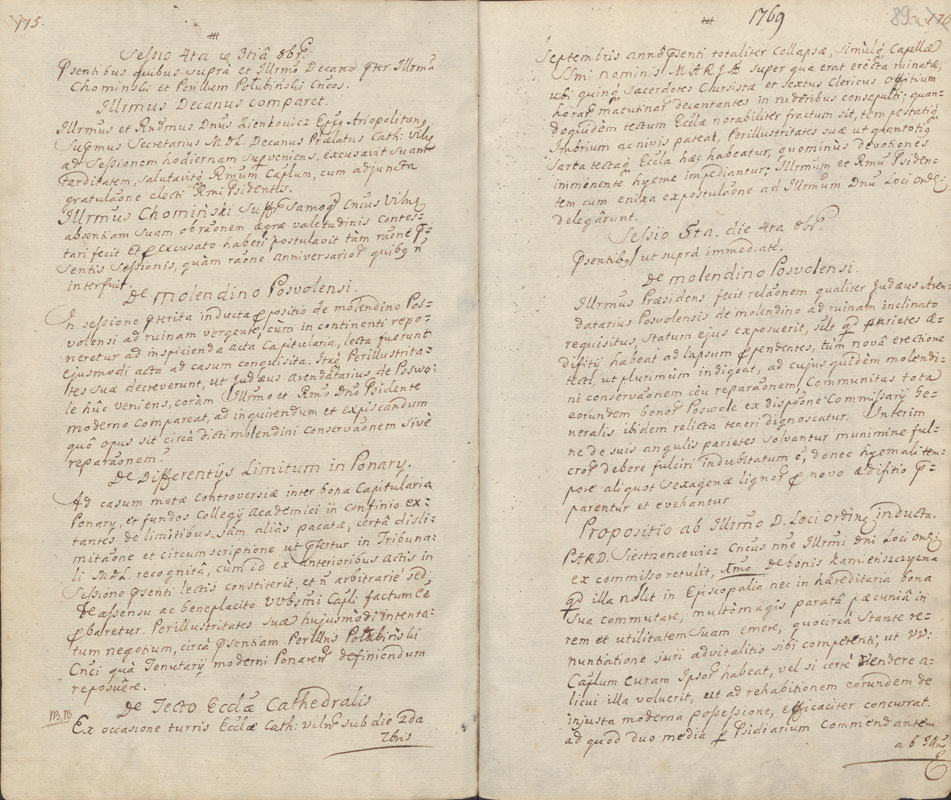 175.
Sessio 4ta ie 3tiâ 8br.
Psentibus quibus supra et Illrmo Decano pter Illrmũ
Chominski et Perillem Potubinski Cncos.
Illrmus Decanus comparet.
Illrmus et Rndmus Dnus Zienkowicz Eppus Ariopolitang
Supmus Secretarius M.D.L. Decanus Prælatus Cath: Viln:
ad Sessionem hodiernam superveniens, excusavit suam
tarditatem, salutavitq Rmum Caplum, cum adjuncta
gratulaõne electi Rmi Psidentis.
Illrmus Chominski Suffr Samog Cncus Vilng
absentiam suam ob raõnem ægræ valetudinis contes-
tari fecit et p excusato haberi postulavit tàm raõne p-
sentis Sessionis, quàm raõne anniversarior quibg ñ
interfuit.
De molendino Posvolensi.
In sessione pterita inducta ppositio de molendino Pos-
volensi ad ruinam vergente, cùm in continenti repo-
neretur ad inspicienda acta Capitularia, lecta fuerunt
ejusmodi acta ad casum conquisita. Itaq Perillustrita-
tes suæ decreverunt, ut Judæus Arendatarius de Poswo-
le hûc veniens, coràm Illrmo et Rmo Dno Psidente
moderno Compareat, ad inquirendum et expiscandum
quô opus sit circà dicti molendini Conservaõnem Sivè
reparaõnem.
De Differentijs Limitum in Ponary.
Ad casum motæ controversiæ inter bona Capitularia
Ponary, et fundos Collegij Academici in Confinio ex-
tantes de limitibus, jam aliàs pacatæ, certâ disli-
mitaõne et circumscriptione ut pfertur in Tribuna-
li M.D.L. recognitâ, cum id ex anterioribus actis in
Sessione psenti lectis constiterit, et ñ arbitrariè sed
de assensu ac beneplacito VVbsmi Capli factum ee
pbaretur. Perillustritates suæ hujusmodi intenta-
tum negotium, circà psentiam Perillris Potubinski
Cnci quà Tenutarij moderni Ponaren definiendum
reposuêre.
De Tecto Ecclæ Cathedralis
Ex occasione turris Ecclæ Cath: Viln: sub die 2da
7bris
1769
89
Septembris anni psenti totaliter Collapsæ, simulq Capellæ
SSmi nominis MARIÆ super qua erat erecta ruinatæ,
ubi quinq Sacerdotes Cursistæ et sextus Clericus officium
horar matutinar decantantes in ruderibus consepulti; quan-
doquidem tectum Ecclæ notabiliter fractum sit,
imbrium ac nivis pateat, Perillustritates suæ ut quantotiq
Sarta tectaq Eccla hæc habeatur, quominus devotiones
imminente hyeme impediantur; Illrmum et Rmũ Psiden-
tem cum enixa expostulaõne ad Illrmum Dnũ Loci ordng
delegârunt.
Sessio 5ta. die 4ta 8br.
Psentibg ut suprâ immediatè.
De molendino Posvolensi.
Illrmus Præsidens fecit relaõnem qualiter Judæus Aren-
datarius Posvolensis de molendino ad ruinam inclinato
requisitus, statum ejus exposuerit, silt qd parietes æ-
difitij habeat ad lapsum ppendentes, tùm novâ erectione
tecti ut plurimùm indigeat, ad cujus quidem molendi-
ni conservaõnem ceu reparaõnem, Communitas tota
eorundem bonor Poswole ex dispõne Commissarij Ge-
neralis ibidem relicta teneri dignoscatur. Interim
ne de suis angulis parietes solvantur munimine ful-
cror debere fulciri indubitatum ê, donec hyemali tem-
pore aliquot sexagenæ lignor p novo ædifitio p-
parentur et evehantur.
Propositio ab Illrmo D. Loci ordinr inducta.
PARD. Siestrzencewicz Cncus nne Illrmi dni Loci ordg
ex commisso retulit, Xmo de bonis Kamienszczyzna
qd illa nolit in Episcopalia nec in hæreditaria bona
sua commutare, multomagis paratâ pæcuniâ in
rem et utilitatem suam emere, quocircà stante re-
nuntiatione juri advitalitio sibi competenti; ut VV:
Caplum curam Ipsor habeat, vel si certè Vendere a-
licui illa voluerit, aut ad rehabitionem eorundem de
injusta moderna possessione, efficaciter concurrat.
ad quod duo media p Psidiarium Commendantem
ab Illmo